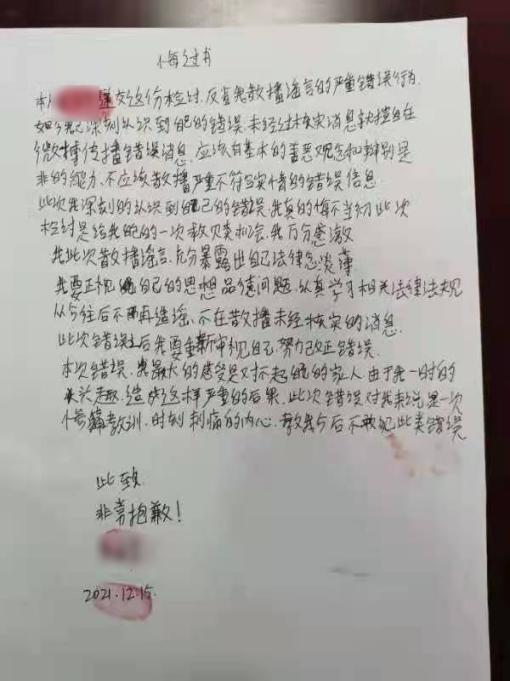 悔过书
本人 递交这份检讨,反省我散播谣言的严重错误行为.
如今我已深刻认识到自己的错误.未经过核实消息就擅自在
微博传播错误消息.应该有基本的善恶观念和辨别是
非的能力.不应该散播严重不符合实情的错误信息
此次我深刻的认识到自己的错误.我真的悔不当初此次
检讨是给我自己的一次教训和机会.我万分感激
我此次散播谣言.充分暴露出自己法律意识淡薄
我要正视自己的思想品德问题.认真学习相关法律法规
从今往后不再造谣.不在散播未经核实的消息.
此次错误之后我要重新审视自己.努力改正错误.
本次错误.我最大的感受是对不起自己的家人由于我一时的
造成这样严重的后果.此次错误对我来说是一次
教训.时刻刺痛的内心.教我今后不敢犯此类错误
此致
非常抱歉!
2021.12.15.